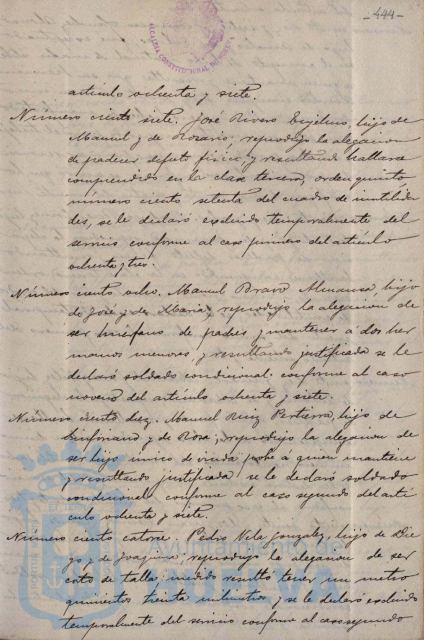 -444-
ALCALDIA CONSTITUCIONAL
artículo ochenta y siete.
Número ciento siete. José Rivero Eugenio, hijo de
Manuel y de Rosario; reprodujo la alegacion
de padecer defecto físico, y resultando hallarse
comprendido en la clase tercera, orden quinto
número ciento setenta del cuadro de inutilida
des, se le declaró excluido temporalmente del
servicio conforme al caso primero del artículo
ochenta y tres.
Número ciento ocho. Manuel Bravo Almansa, hijo
de José y de María; reprodujo la alegacion de
ser huérfano de padres y mantener á dos her
manos menores, y resultando justificada se le
declaró soldado condicional conforme al caso
noveno del artículo ochenta y siete.
Número ciento diez. Manuel Ruiz Pertierra, hijo de
y de Rosa; reprodujo la alegacion de
ser hijo único de viuda pobre á quien mantiene
y resultando justificada se le declaró soldado
condicional conforme al caso segundo del artí
culo ochenta y siete.
Número ciento catorce. Pedro Vela Gonzalez, hijo de Die
go y de Joaquina; reprodujo la alegacion de ser
corto de talla; medido resultó tener un metro
quinientos treinta milimetros y se le declaró excluido
temporalmente del servicio conforme al caso segundo